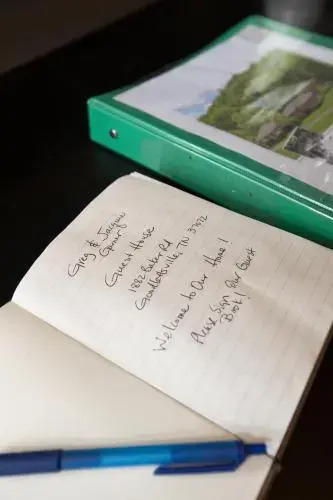 Greg & Jacquie
Guest House
1882 Baker Rd
Goodlettsville, TN 37072
Welcome to Our Home!
Please Sign Our Guest
Book!